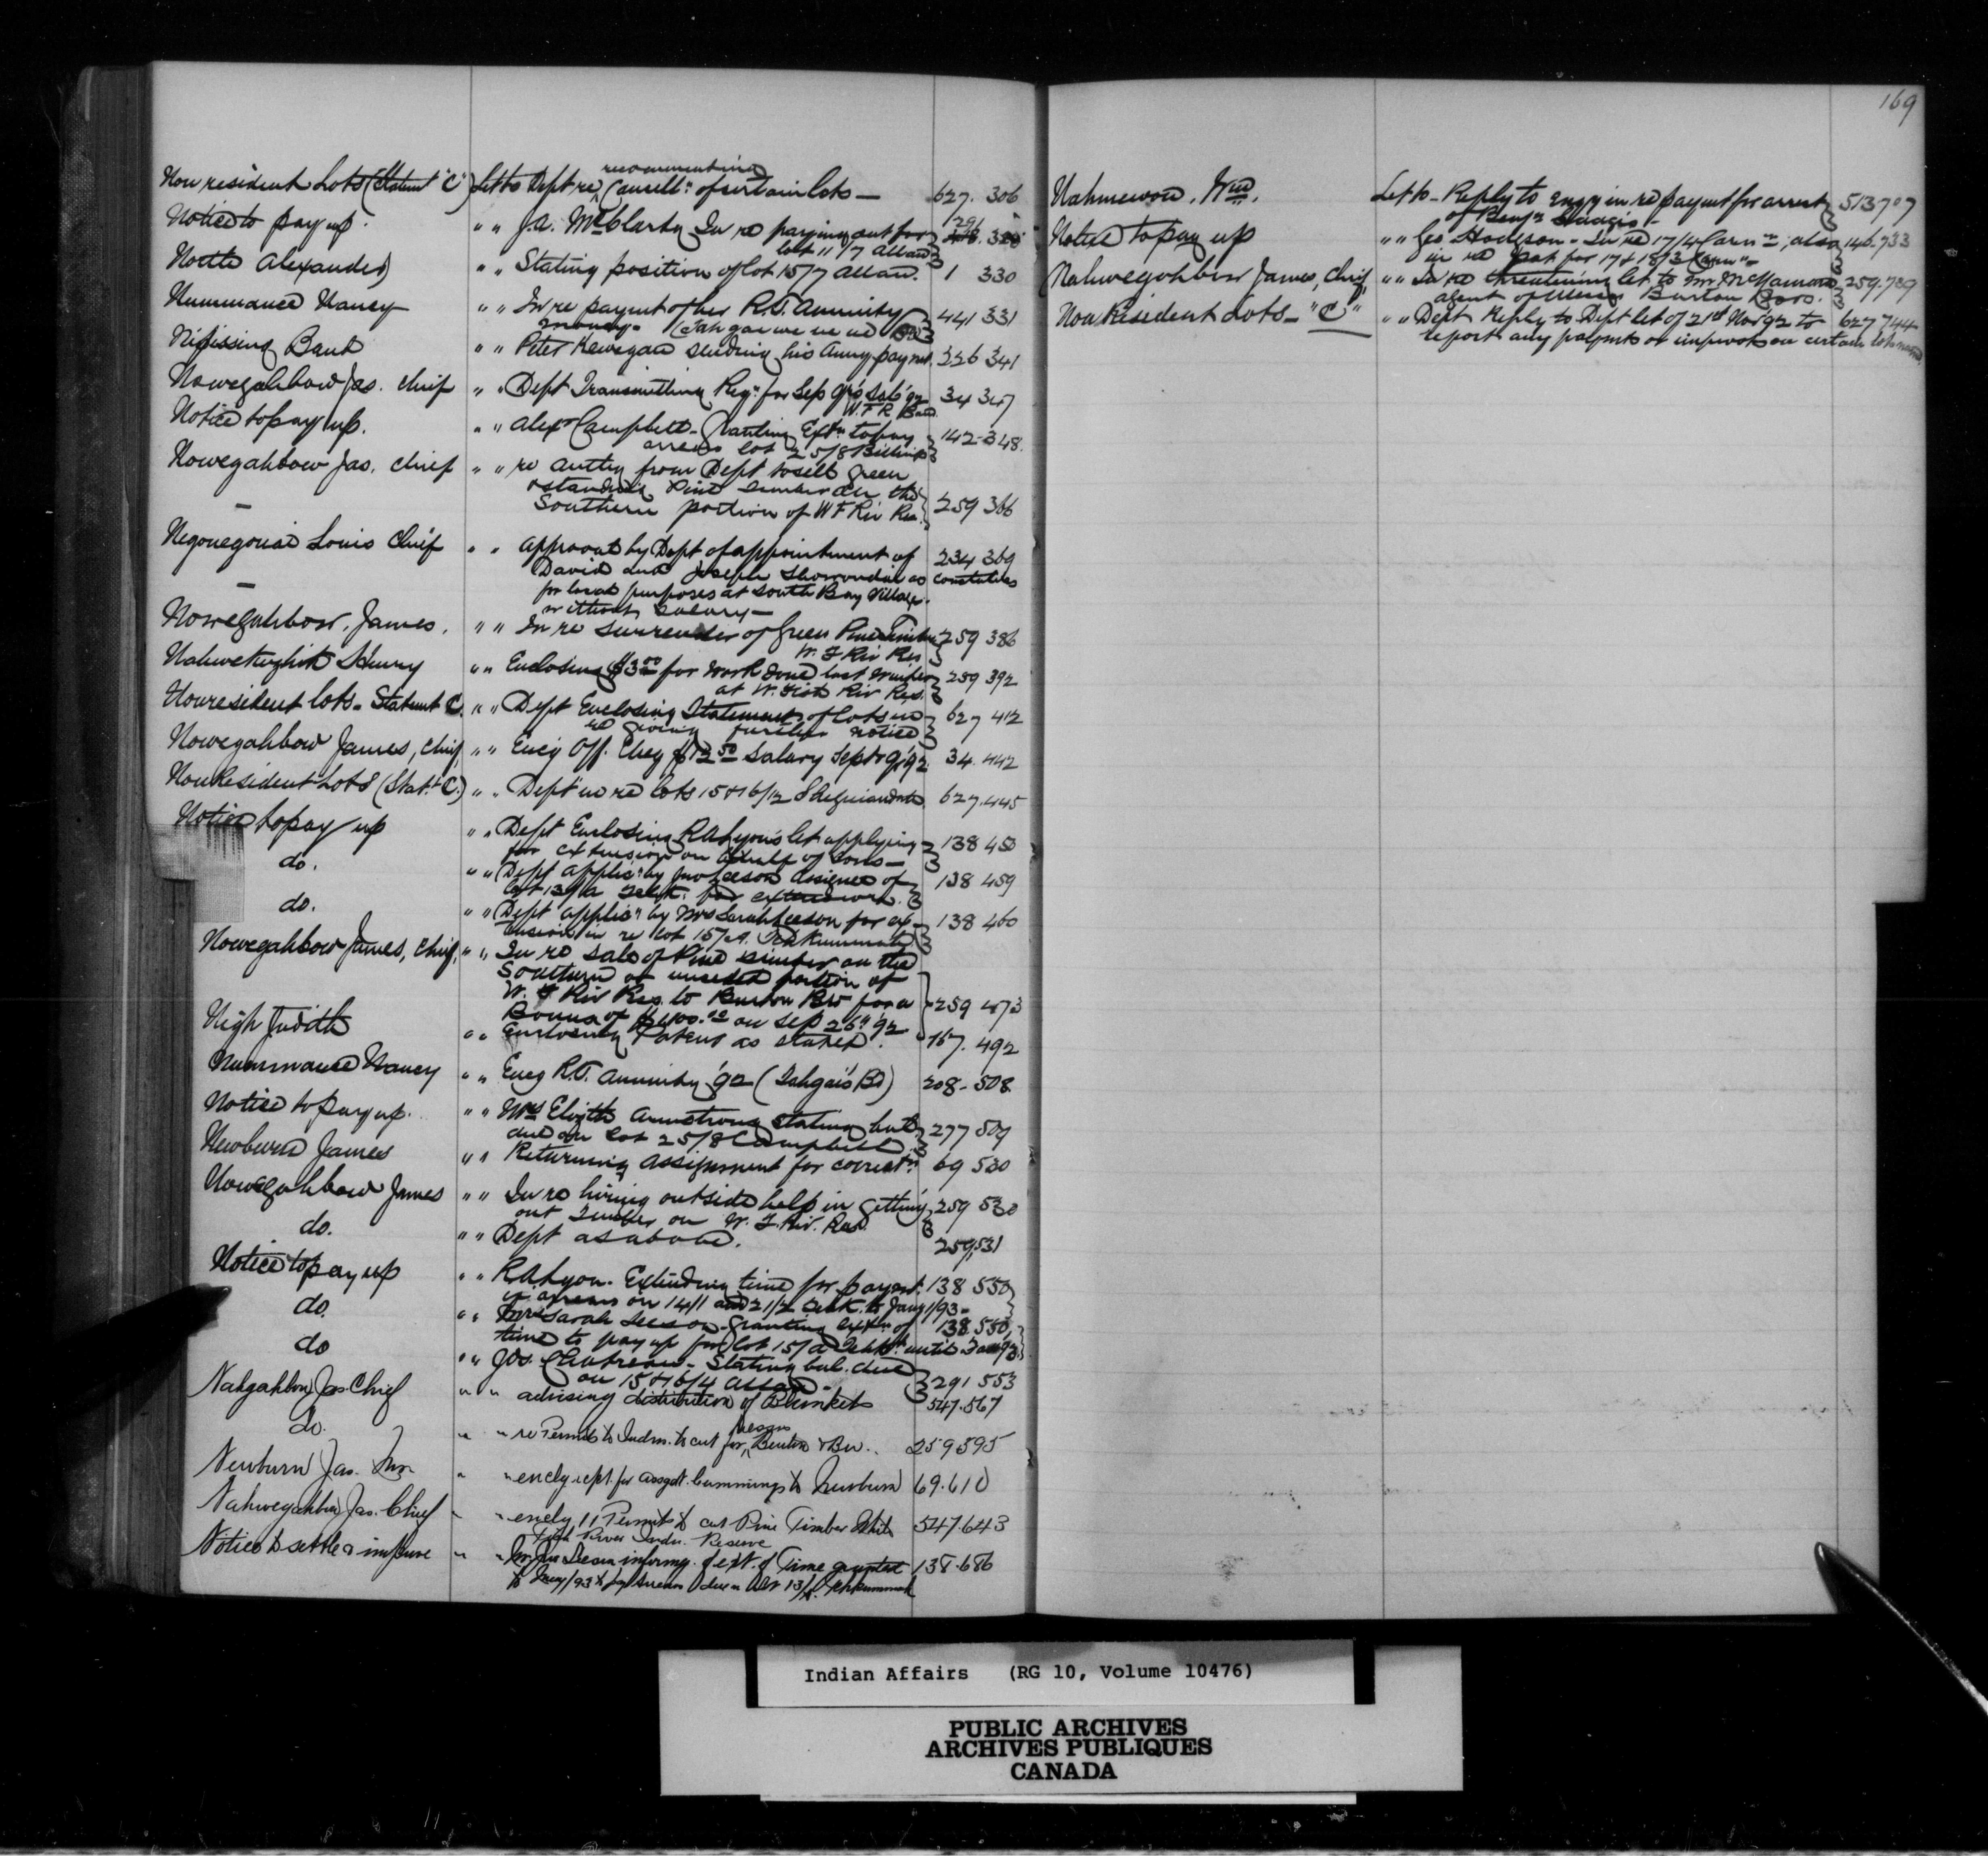 169
Non resident Lots (Statemt "C") Let to Dept re recommending Cancelln of certain lots — 627. 306
Notice to pay up. " " J.A. McClarty In re paying out for 291 328
lot 11/7 Allan
North Alexander " " Stating position of lot 15/7 Allan. 1 330
Nummance Nancy " " In re paymt of her R.T. annuity 441 331
money -
Nipissing Band " " Peter Kewegan sending his Anny paymt. 326 341
Nowegahbow Jas. Chief " " Dept Transmitting Reqn for Sep qr's sal'y 34 347
W.F.R. Band
Notice to pay up. " " Alexr Campbell - Granting Extn to pay 142-348.
arrears lot 25/8 Billings
Nowegahbow Jas. Chief " " re authy from Dept to sell green
& standing Pine timber on the
Southern portion of W F Riv Res. 259 366
Negonegonid Louis Chief " " approval by Dept of appointment of 234 369
David and Joseph as constables
for local purposes at South Bay Village
without salary —
Nowegahbow, James. " " In re surrender of Green Pine Timber 259 386
W. F Riv Res
Henry " " Enclosing $3.00 for work done last winter 259 392
at W. Fish Riv Res.
Nonresident lots - Statemt C. " " Dept Enclosing Statement of lots in 627 412
re giving further notice
Nowegahbow James, Chief, " " Encg Off. Cheq $12.50 salary Sept qr'92 34. 442
Non Resident Lots (Stat.t C.) " " Dept in re lots 15 & 16/12 Sheguiandah 627.445
Notice to pay up " " Dept Enclosing R A Lyon's let applying 138 450
for extension on behalf of sons —
do. " " Dept applicn by Jno Leeson assignee of 138 459
lot 13/A Tehk. for extension.
do. " " Dept applicn by Mrs Sarah Leeson for ex- 138 460
tension in re lot 15/A. Tehkummah
Nowegahbow James, Chief, " " In re sale of Pine timber on the
Southern or unceded portion of
W. F Riv Res. to Burton Bro for a 259 473
Bonus of $400.00 on Sep 26th '92
Nigh Judith " " Enclosing Patent as stated. 167. 492
Nummance Nancy " " Encg R.T. annuity '92 (Tahgai's Bd) 208-508
Notice to pay up. " " Mrs Elizth Armstrong stating bal. 277 509
due on lot 25/8 Campbell
Newburn James " " Returning assignment for correctn. 69 520
Nowegahbow James " " In re hiring outside help in getting 259 530
out timber on W. F. Riv. Res.
do. " " Dept as above. 259,531
Notice to pay up " " R.A. Lyon. Extending time for paymt. 138 550
of arrears on 14/1 and 21/2 Tehk. to Jany 1/93 -
do. " " Mrs Sarah Leeson - granting extn of 138.550,
time to pay up for lot 15/A Tehkh. until Jany/93
do " " Jos. - Stating bal. due
on 15 & 16/4 Allan - 291 553
Nahgahbow Jas. Chief " " advising distribution of Blankets 547.567
do. " " re Permits to Indns. to cut for Messrs Burton & Bro. . 259595
Newburn Jas. Snr " " encly rept. for assgt. Cummings to Newburn 69.610
Nahwegahbow Jas. Chief " " encly 11 Permits to cut Pine Timber White 547643
Fish River Indn. Reserve
Notice to settle & improve " " Mr Jno Leeson informg. of ext. of Time granted 138.686
to Jany/93 to pay arrears due on lot 13/A. Tehkummah
Nahmewon, Wm. Let to - Reply to enqy in re paymt for arrest 513707
of Benjn
Notice to pay up " " Geo Hodgson - In re 17/4 Carn; also 146.733
in re Pat. for 17 & 18/3 Carn
Nahwegahbow James, Chief, " " In re threatening let. to Mr McNamara 259.739
agent of Messrs Burton Bros.
Non Resident Lots - "C" " " Dept Reply to Dept let of 21st Nov 92 to 627 744
report any paymts or improvts on certain lots named
Indian Affairs (RG 10, Volume 10476)
PUBLIC ARCHIVES
ARCHIVES PUBLIQUES
CANADA